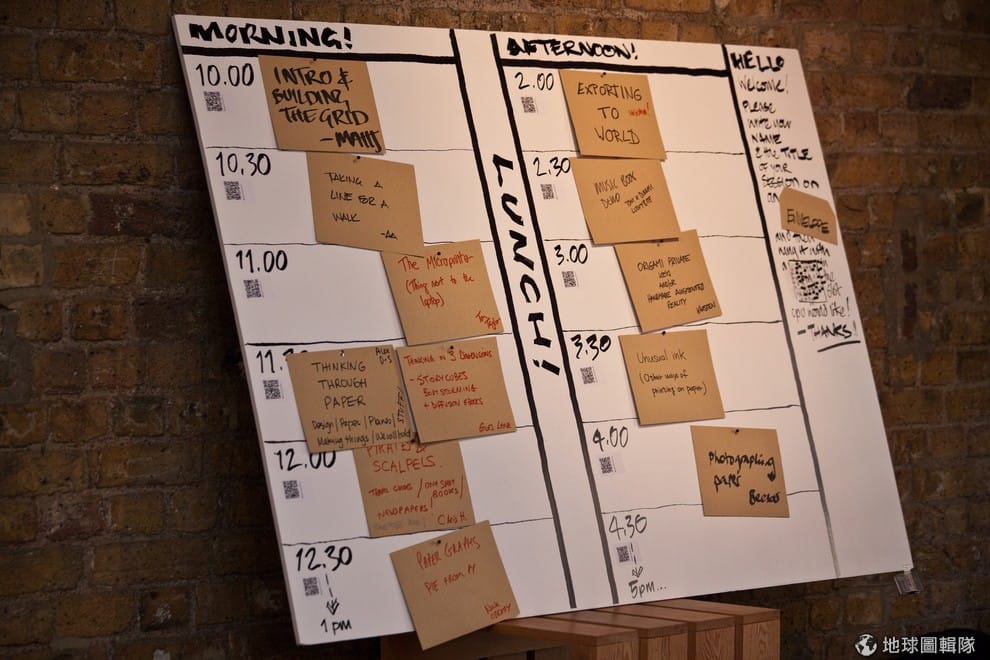 MORNING!
10.00
INTRO &
BUILDING
THE GRID
10.30
TAKING A
LINE FOR A
WALK
11.00
(Thing next to the
laptop)
THINKING
THROUGH
PAPER
Design / Paper / Planes /
Making things / We will
THINKING IN 3 DIMENSIONS
- STORYCUBES
12.00
PIRATES &
SCALPELS.
BOOKS/
NEWSPAPERS/
Chris H
12.30
1pm
PAPER GRAPHS
PIE FROM PY
LUNCH!
AFTERNOON!
2.00
EXPORTING
TO
WORLD
2.30
MUSIC BOX
DEMO
3.00
ORIGAMI PRIVATE
AND/OR
HANDMADE AUGMENTED
REALITY
3.30
Unusual ink
(Other ways of
printing on paper)
4.00
Photographing
paper
4.30
5pm...
HELLO
WELCOME!
PLEASE
WRITE YOUR
NAME
& the TITLE
OF YOUR
SESSION ON
AN
ENVELOPE
and then
you'd like!
- THANKS!
地球圖輯隊